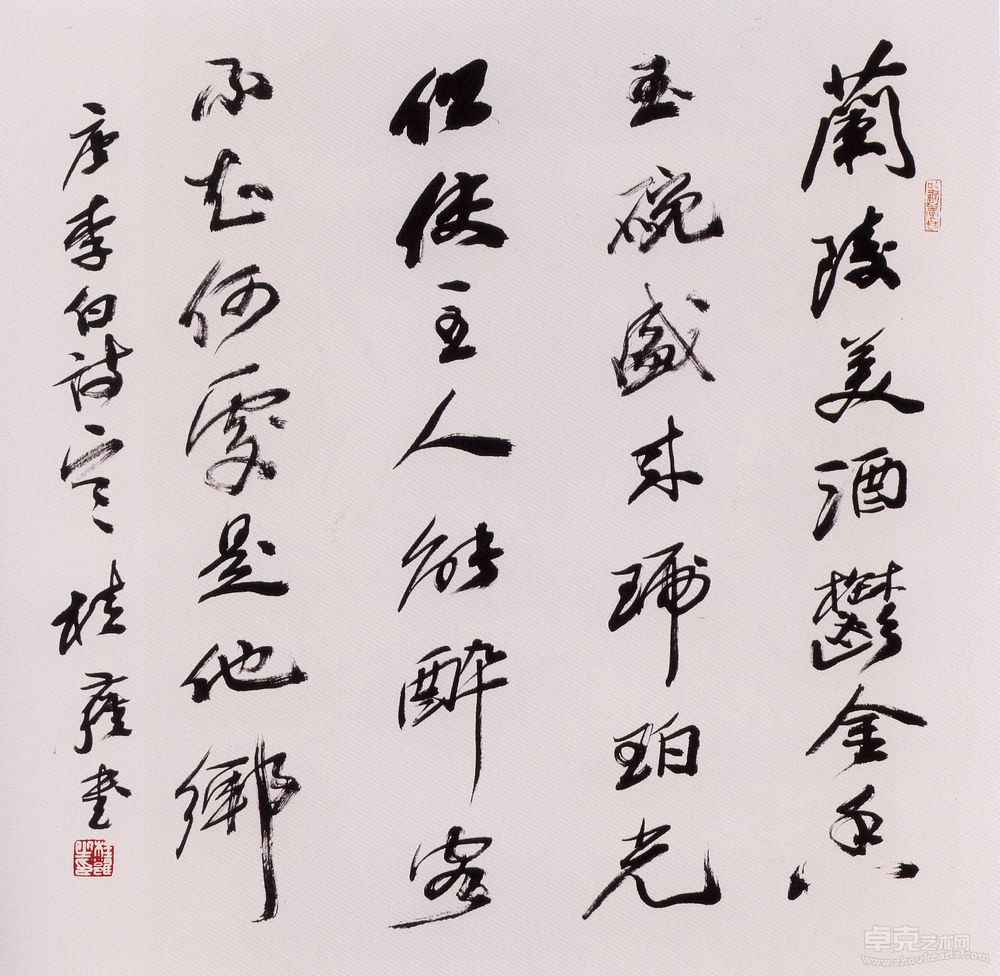 蘭陵美酒鬱金香
玉碗盛來琥珀光
但使主人能醉客
不知何處是他鄉
唐李白詩一首 桂雍書
桂雍
卓克艺术网
www.zhoukearts.com